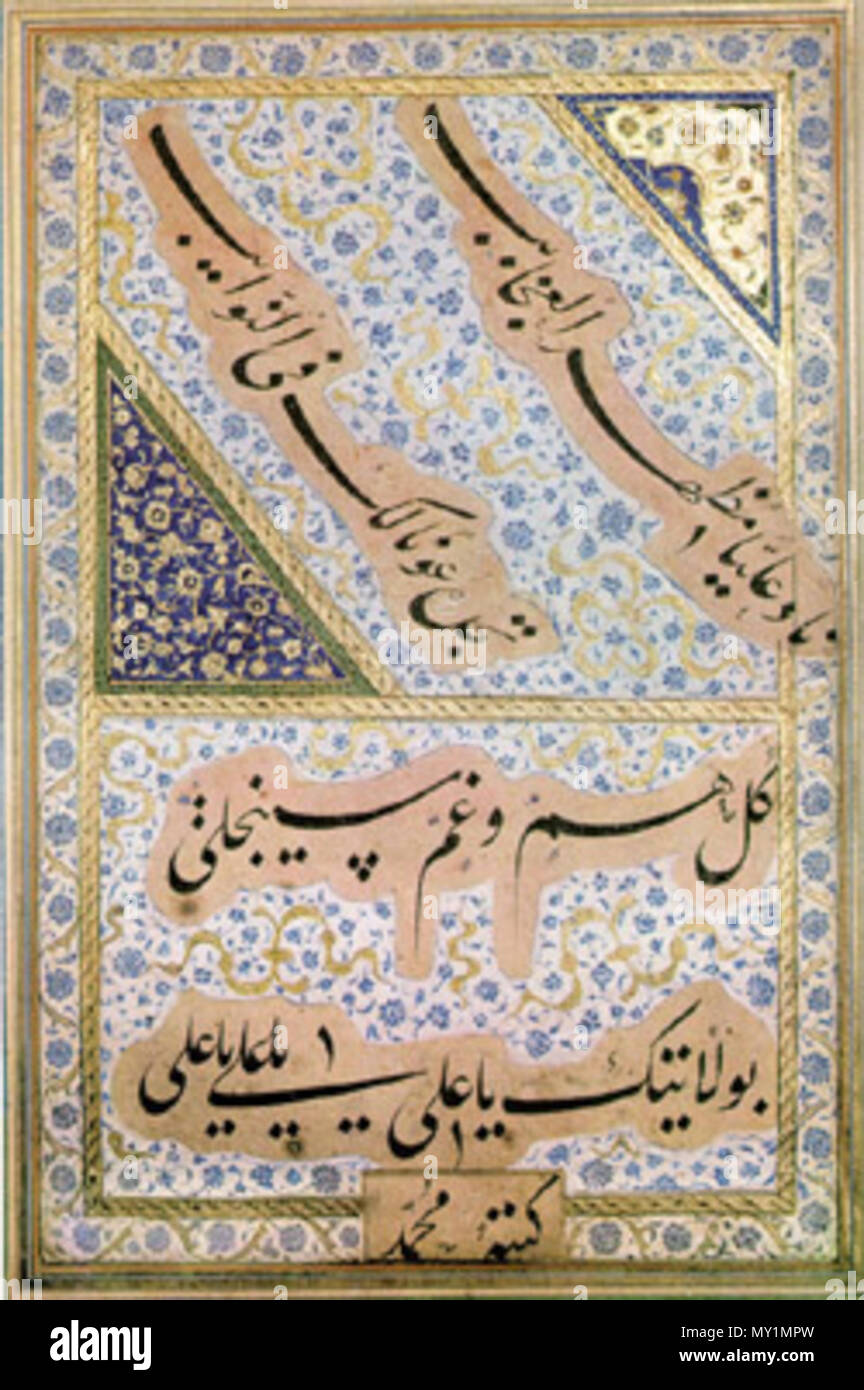 ناد علیا مظهر العجایب
تجده عونا لک فی النوایب
کل هم و غم سینجلی
بولایتک یا علی یا علی یا علی
کتبه محمد
alamy
Image ID: MY1MPW
www.alamy.com